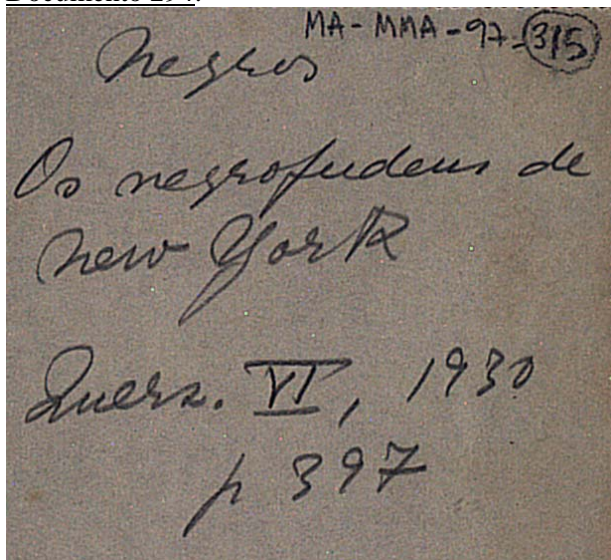 Documento 294:
MA-MMA-97-315
Negros
Os negrojudeus de
New York
Quers. VI, 1930
p 397